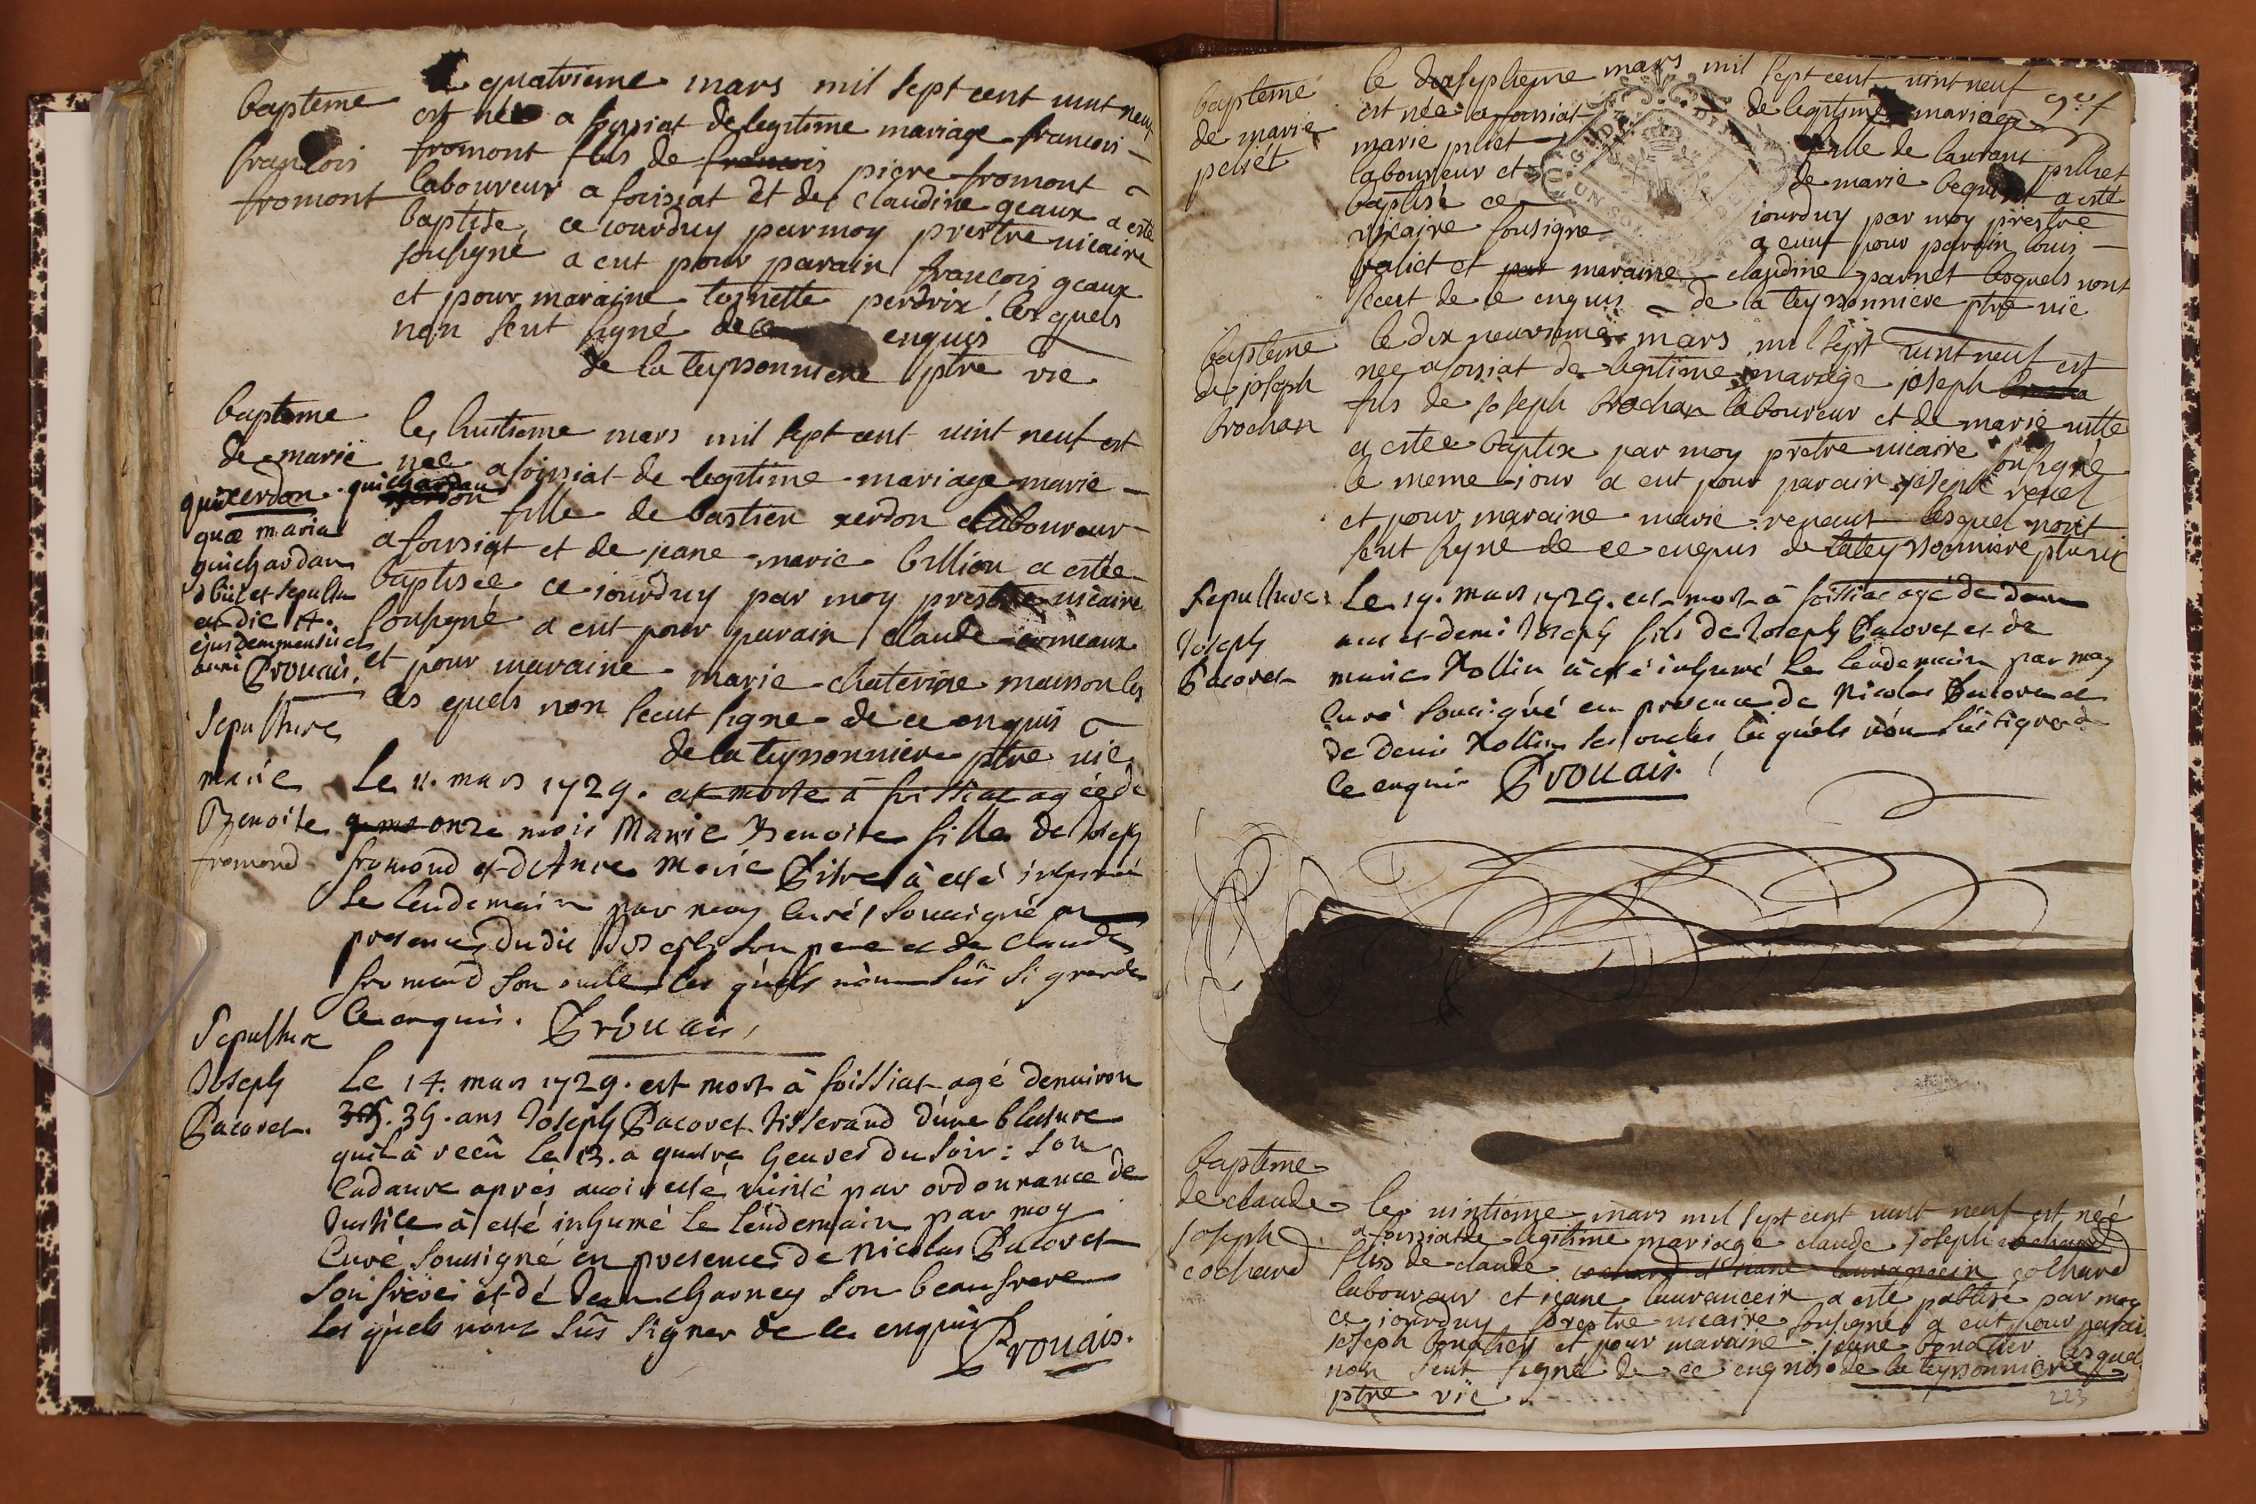 bapteme
francois
fromont
le quatrieme mars mil sept cent uint neuf
est née a foissiat de legitime mariage francois
fromont fils de francois piere fromont
laboureur a foissiat et de claudine geaux a esté
baptisé, ce iourduy par moy prestre uicaire
sousigné a eut pour parain francois geaux
et pour maraine toinette perdrix lesquels
non seut signé de ce enquis
de la teyssonniere ptre vic
bapteme
de marie
xerdon
quæ maria
guichardan
obiit et sepulta
est die 14.
ejusdem mensis et
anni Prouais.
les huitieme mars mil sept cent uint neuf est
nee a foissiat de legitime mariage marie
guichardan
fille de bastien xerdon laboureur
a foissiat et de jeane marie billion a estée
baptisée ce iourduy par moy prestre uicaire
sousigné a eut pour parain claude comeaux
et pour maraine marie chaterine maisson les
les quels non sceut signe de ce enquis
de la teyssonniere ptre vic
Sepulture
marie
Benoite
fromond
Le 11. mars 1729. est morte à foissiat agée de
onze mois Marie Benoite fille de Joseph
fromond et d'Anne Marie Pitre à esté inhumée
Le lendemain par moy curé soussigné en
presence dudit Joseph son pere et de claude
fromond son oncle les quels n'ont süs signer de
ce enquis. Prouais,
Sepulture
Joseph
Pacoret.
Le 14. mars 1729. est mort à foissiat agé denuiron
39. ans Joseph Pacoret tisserand d'une blesure
quil à reçû le 13. a quatre heures du soir: son
cadaure aprés auoir esté uisité par ordonnance de
Justice à esté inhumé le lendemain par moy
Curé sousigné en presence de Nicolas Pacoret
son frere et de Jean charney son beaufrere
les quels n'ont süs signer de ce enquis
Prouais.
bapteme
de marie
peliét
le dixseptieme mars mil sept cent uint neuf
est née a foissiat de legitime mariage
marie peliet fille de laurant peliet
laboureur et de marie a esté
baptisé ce iourduy par moy prestre
uicaire sousigne a eut pour parain louis
et par maraine claudine parnet lesquels nont
sceut de ce enquis de la teyssonniere ptre vic
bapteme
de joseph
brochan
le dix neuvieme mars mil sept uint neuf est
nee a foissiat de legitime mariage joseph
fils de joseph brochan laboureur et de marie uitte
a estée baptise par moy pretre uicaire sousigné
le meme iour a eut pour parain joseph reuel
et pour maraine marie renaut lesquel nont
seut signe de ce enquis de lateyssonniere
Sepulture
Joseph
Pacoret
Le 19. mars 1729. est mort à foissiat agé de deux
ans et demi Joseph fils de Joseph Pacoret et de
marie Rollin à esté inhumé le lendemain par moy
Curé soussigné en presence de Nicolas Pacoret et
de denis Rollin ses oncles lesquels n'ont süs signer de
ce enquis Prouais.
bapteme
de claude
joseph
cochard
les uintieme mars mil sept cent uint neuf est neé
a foissiat de legitime mariage claude joseph cochard
fils de claude cochard
laboureur et jeane laurancein a esté babtise par moy
ce jourduy prestre uicaire sousigné a eut pour parain
joseph bonatier et pour maraine jeane bonatier lesquel
non seut signe de ce enquis de la teyssonniere
ptre vic
223